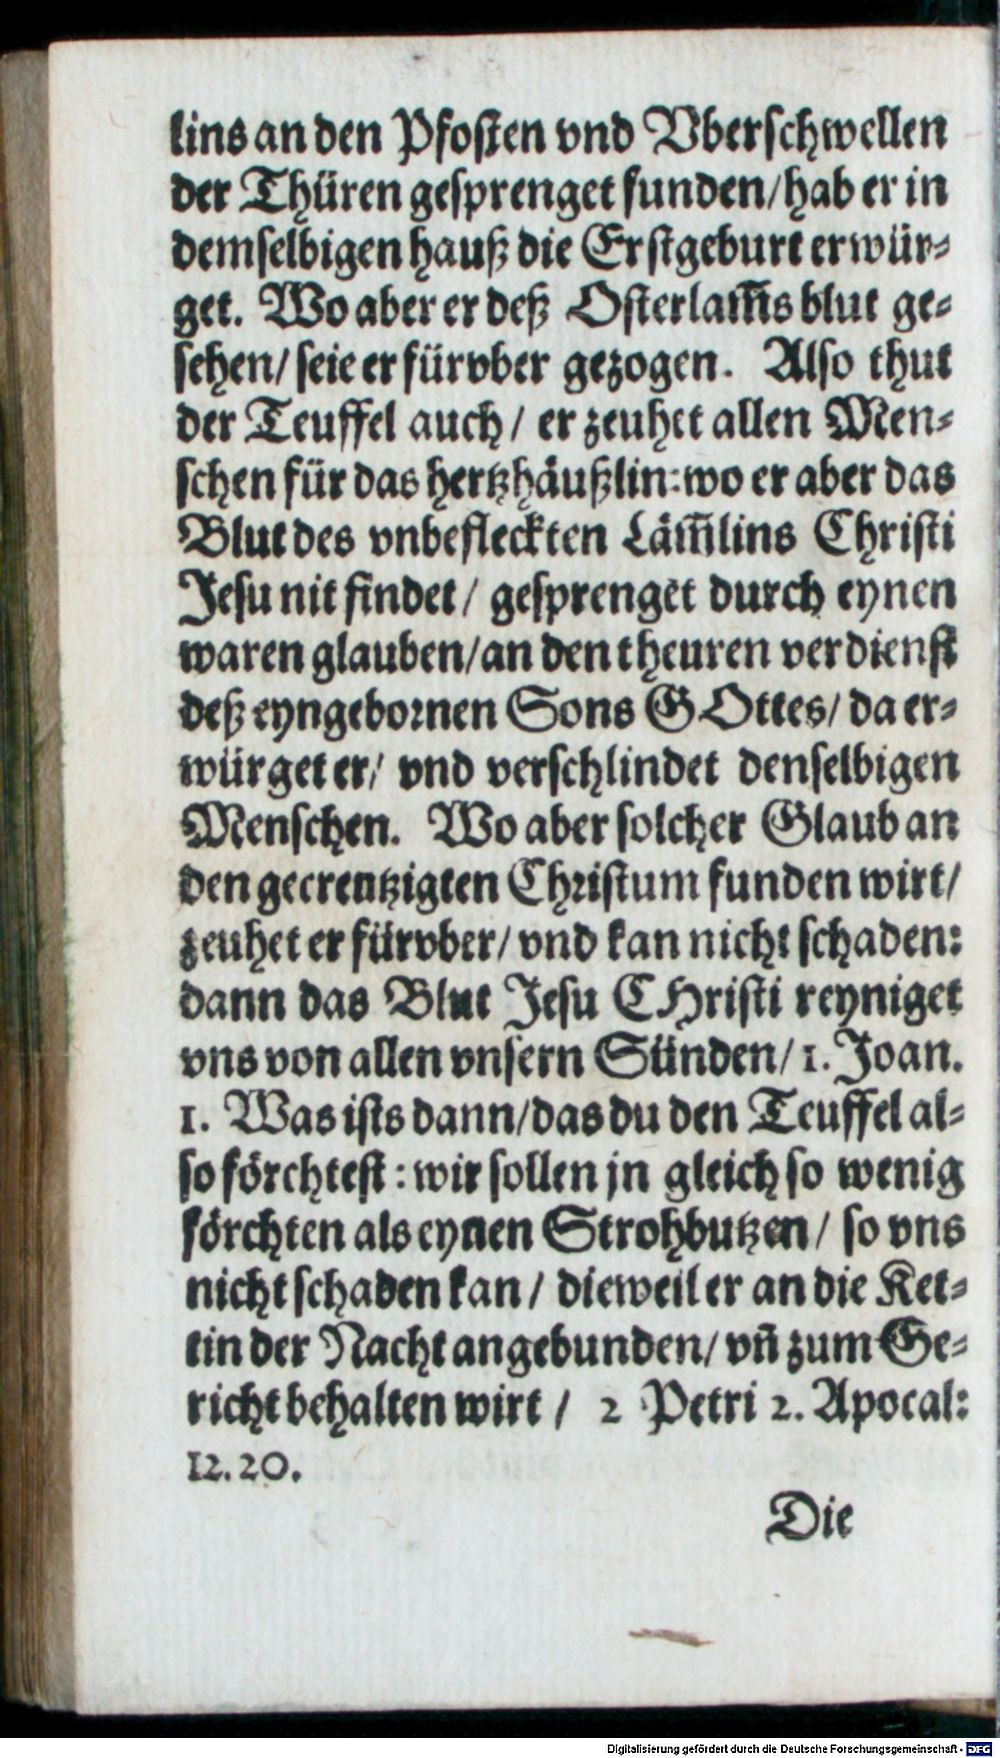 lins an den Pfosten vnd Vberschwellen
der Thüren gesprenget funden/ hab er in
demselbigen hauß die Erstgeburt erwür-
get. Wo aber er deß Osterlam̃s blut ge-
sehen/ seie er fürvber gezogen. Also thut
der Teuffel auch/ er zeuhet allen Men-
schen für das hertzhäußlin: wo er aber das
Blut des vnbefleckten Läm̃lins Christi
Jesu nit findet/ gesprenget durch eynen
waren glauben/ an den theuren verdienst
deß eyngebornen Sons GOttes/ da er-
würget er/ vnd verschlindet denselbigen
Menschen. Wo aber solcher Glaub an
den gecreutzigten Christum funden wirt/
zeuhet er fürvber/ vnd kan nicht schaden:
dann das Blut Jesu CHristi reyniget
vns von allen vnsern Sünden/ 1. Joan.
1. Was ists dann/ das du den Teuffel al-
so förchtest: wir sollen jn gleich so wenig
förchten als eynen Strohbutzen/ so vns
nicht schaden kan/ dieweil er an die Ket-
tin der Nacht angebunden/ vñ zum Ge-
richt behalten wirt/ 2 Petri 2. Apocal:
12. 20.
Die
Digitalisierung gefördert durch die Deutsche Forschungsgemeinschaft - DFG